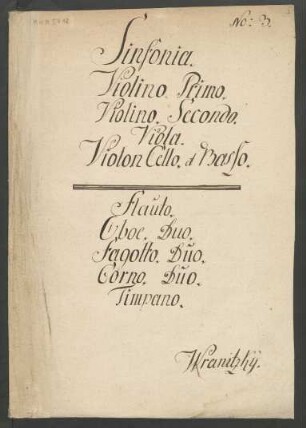 No: 3.
Sinfonia.
Violino Primo.
Violino. Secondo.
Viola.
Violon Cello, et Basso.
Flauto.
Oboe. Duo.
Fagotto. Duo.
Corno. Duo.
Timpano.
Wranitzky.